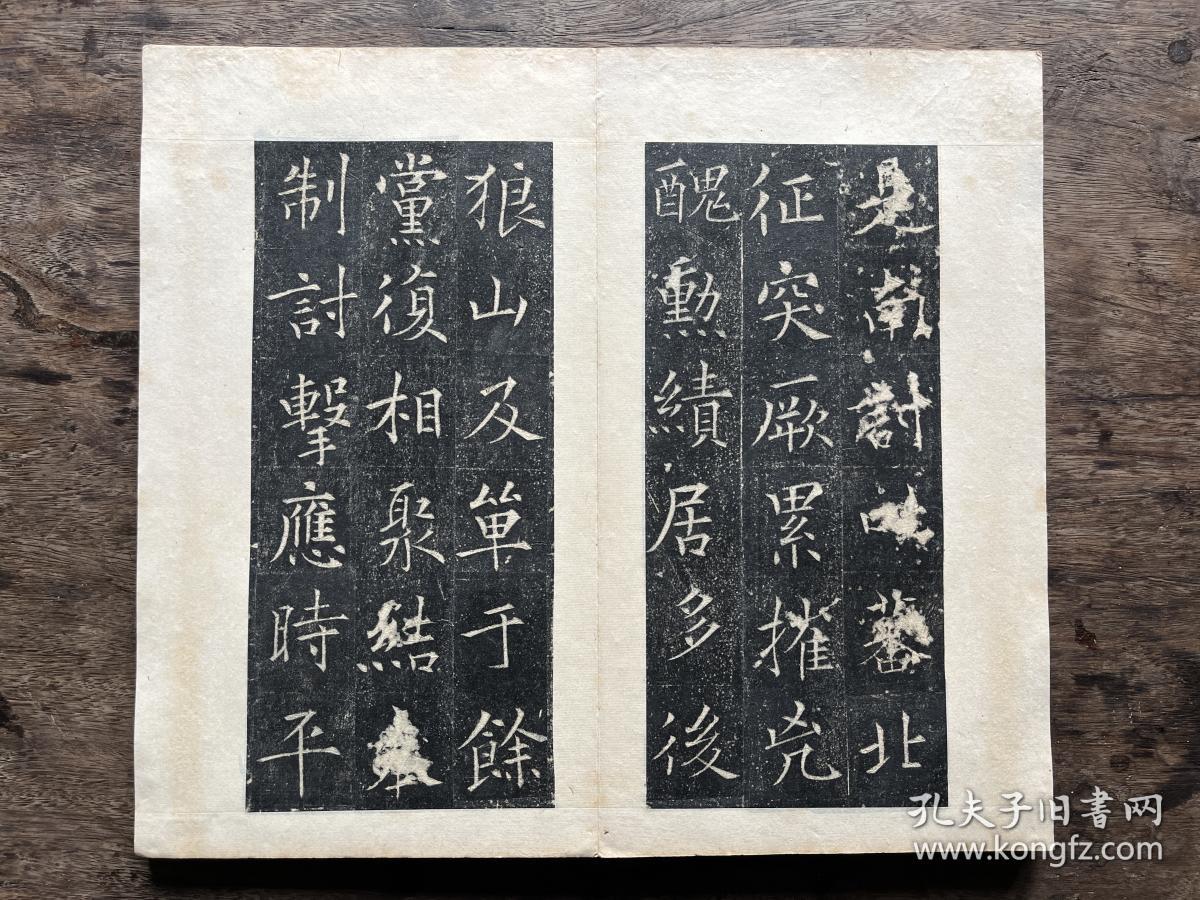 是南討吐蕃北
征突厥累摧兇
醜勳績居多後
狼山及單于餘
黨復相聚結奉
制討擊應時平
孔夫子旧书网
www.kongfz.com